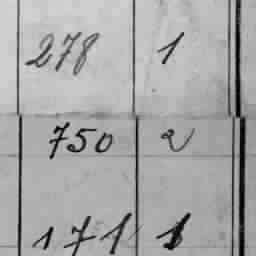 278 1
750 2
171 1